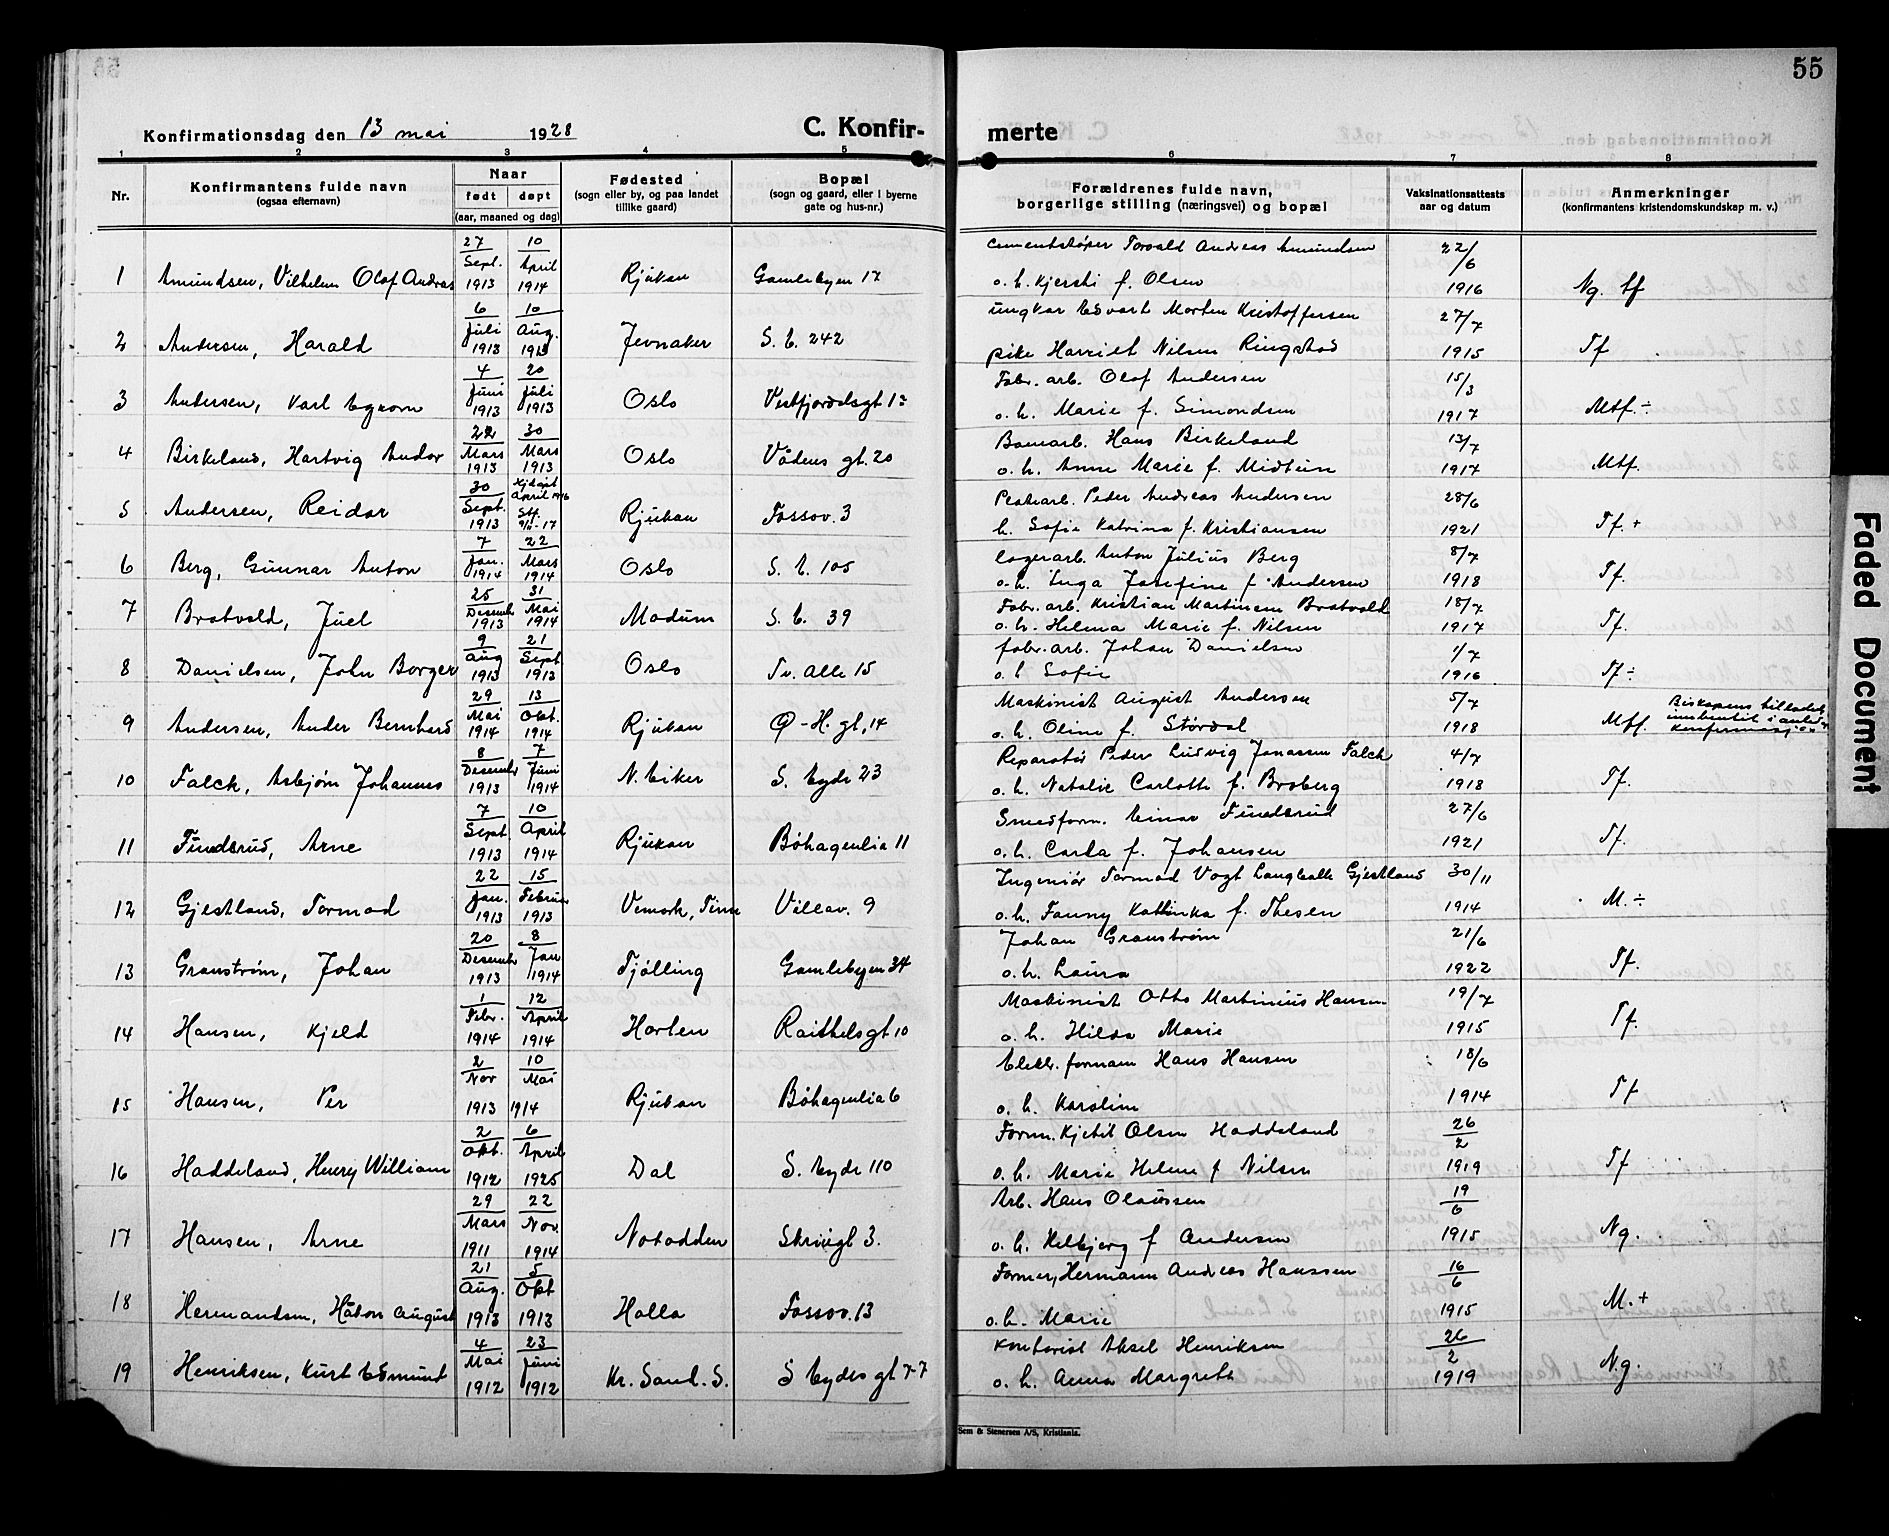 55
Konfirmationsdag den 13 mai 1928
C. Konfir-
merte
1 2 3 4 5 6 7 8
Nr.
Konfirmantens fulde navn
(ogsaa efternavn)
Naar
født døpt
(aar, maaned og dag)
Fødested
(sogn eller by, og paa landet
tillike gaard)
Bopæl
(sogn og gaard, eller i byerne
gate og hus-nr.)
Forældrenes fulde navn,
borgerlige stilling (næringsvei) og bopæl
Vaksinationsattests
aar og datum
Anmerkninger
(konfirmantens kristendomskundskap m. v.)
1 Amundsen, Vilhelm Olaf Andreas 27 Sept. 1913 10 April 1914 Rjukan Gamlebyen 17 Cementstøper Torvald Andreas Amundsen o. h. Kjersti f. Olsen 22/6 1916 Ng. tf
2 Andersen, Harald 6 Juli 1913 10 Aug. 1913 Jevnaker S. E. 242 ungkar Edvart Morten Kristoffersen pike Harriet Nilsen Ringstad 27/7 1915 Tf
3 Andersen, Karl Egkorn 4 Juni 1913 20 Juli 1913 Oslo Vestfjorddlsgt Fabr. arb. Olaf Andersen o. h. Marie f. Simondsen 15/3 1917 Mtf. ÷
4 Birkeland, Hartvig Andor 22 Mars 1913 30 Mars 1913 Oslo Vådens gt. 20 Bomarb. Hans Birkeland o. h. Anne Marie f. Midtun 13/7 1917 Mtf.
5 Andersen, Reidar 30 Sept. 1913 Hj.døpt April 1916 Stf. -17 Rjukan Fossov. 3 Peder Andreas Andersen h. Sofie Katrina f. Kristiansen 28/6 1921 Tf. +
6 Berg, Gunnar Anton 7 Jan. 1914 22 Mars 1914 Oslo S. E. 105 lagerarb. Anton Julius Berg o. h. Inga Josefine f. Andersen 8/7 1918 Tf.
7 Bratvold, Juel 25 Desembr 1913 31 Mai 1914 Modum S. E. 39 Fabr. arb. Kristian Martinsen Bratvold o. h. Helena Marie f. Nilsen 18/7 1917 Tf.
8 Danielsen, John Borger 9 Aug 1913 21 Sept 1913 Oslo Tv. Alle 15 fabr. arb. Johan Danielsen o. h Sofie 1/7 1916 Tf ÷
9 Andersen, Ander Bernhard 29 Mai 1914 13 Okt. 1914 Rjukan Ø-H. gt, 14 Maskinist August Andersen o. h. Oline f. Stordal 5/7 1918 Mtf. Biskopens tillatelse
10 Falck, Asbjørn Johannes 8 Desembr 1913 7 Juni 1914 N. Eiker S. Eyde 23 Reparatør Peder Ludvig Jonassen Falck o. h. Natalie Carlotte f. Broberg 4/7 1918 Tf.
11 Findsrud, Arne 7 Sept 1913 10 April 1914 Rjukan Bøhagenlia 11 Smedform. Einar Findsrud o. h. Carla f. Johansen 27/6 1921 Tf.
12 Gjestland, Tormod 22 Jan. 1913 15 Februar 1913 Vemork, Tinn Villav. 9 Ingeniør Tormod Vogt Langballe Gjestland o. h. Fanny Kathinka f. Thesen 30/11 1914 M. ÷
13 Granstrøm, Johan 20 Desembr 1913 8 Jan 1914 Tjølling Gamlebyen 34 Johan Granstrøm o. h. Laura 21/6 1922 Tf.
14 Hansen, Kjeld 1 Febr. 1914 12 April 1914 Horten Raithelsgt 10 Maskinist Otto Martinius Hansen o. h. Hilda Marie 19/7 1915 Tf.
15 Hansen, Per 2 Nov 1913 10 Mai 1914 Rjukan Bøhagenlia 6 Elektr. formann Hans Hansen o. h. Karoline 18/6 1914 Tf
16 Haddeland, Henry William 2 Okt. 1912 6 April 1925 Dal S. Eyde 110 Form. Kjetil Olsen Haddeland o. h. Marie Helene f Nilsen 26/2 1919 Tf
17 Hansen, Arne 29 Mars 1911 22 Nov. 1914 Notodden Skriugt 3. Arb. Hans Olaussen o. h. Helbjørg f Andersen 19/6 1915 Ng.
18 Hermandsen, Håkon August 21 Aug. 1913 5 Okt 1913 Holla Fossov. 13 Former, Hermann Andreas Hanssen o. h. Marie 16/6 1915 M. +
19 Henriksen, Kurt Edmund 4 Mai 1912 23 Juni 1912 Kr. Sand. S. S Eydes gt 77 Kontorist Aksel Henriksen o. h. Anna Margrete 26/2 1919 Ng.
Sem & Stenersen A/S, Kristiania.
Faded Document